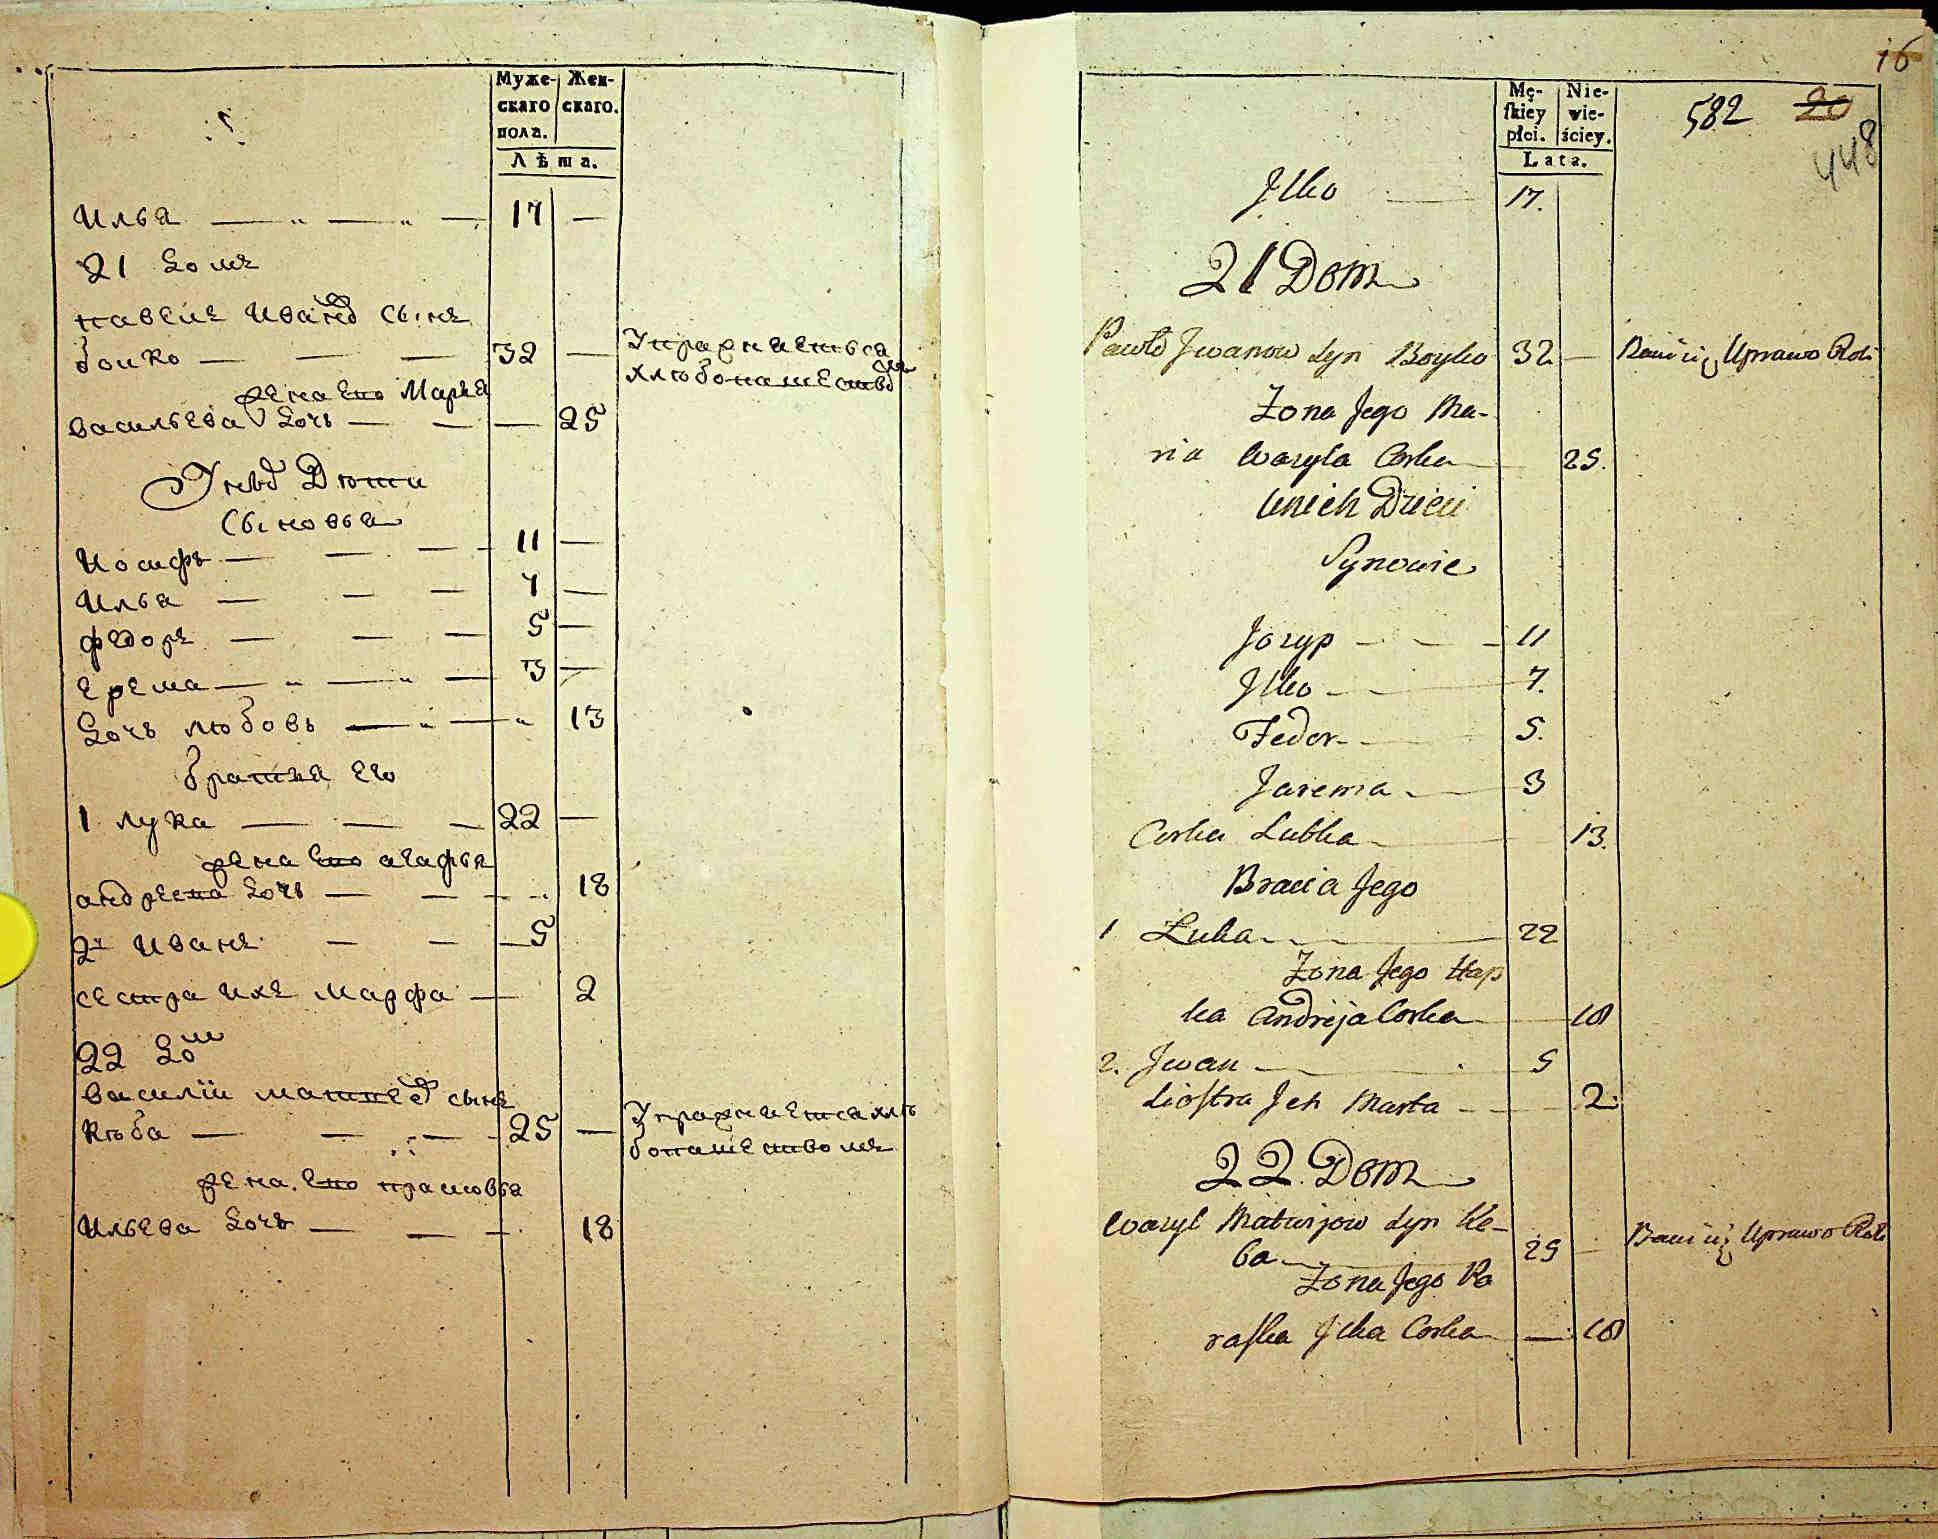 Муже- Жен-
скаго скаго.
пола.
Лѣта.
Илья — „ — „ — 17 —
21 домъ
павелъ Ивановъ сынъ
бойко — — — 32 — Упражняеться
хлюбопашествомъ
жена его Марья
васильева дочь — — — 25
У нихъ Дѣти
Сыновья
Иосифъ — — — 11 —
Илья — — — 7 —
федоръ — — — 5 —
Ерема — „ — „ — 3 —
Дочь любовь — „ — „ 13
братья его
1 лука — — — 22 —
жена его агафья
андреева дочь — — — 18
2й Иванъ — — — 5
сестра ихъ марфа — 2
22 домъ
василий матвеевъ сынъ
кюба — — — 25 — Упражняется хлѣ
бопашествомъ
жена его прасковья
Ильева дочь — — — 18
16
Mę- Nie-
skiey wie-
płci. ściey.
Lata.
582 20
448
Jlko — 17.
21 Dom
Pawło Jwanow Syn Boyko 32 — Bawi się Uprawo Roli
Zona Jego Ma-
ria Wasyla Corka — 25.
Unich Dzieci
Synowie
Jozyp — — — 11
Jlko — — 7.
Fedor — — 5.
Jarema — — 3
Corka Lubka — 13.
Bracia Jego
1 Luka — — 22
Zona Jego Hap
ka Andrija Corka — 18
2. Jwan — 5
Siostra Jch Marta — — 2.
22 Dom
Wasyl Matwijow Syn Ke-
ba — 25 — Bawi się Uprawo Roli
Zona Jego Pa
raska Jlka Corka — — 18